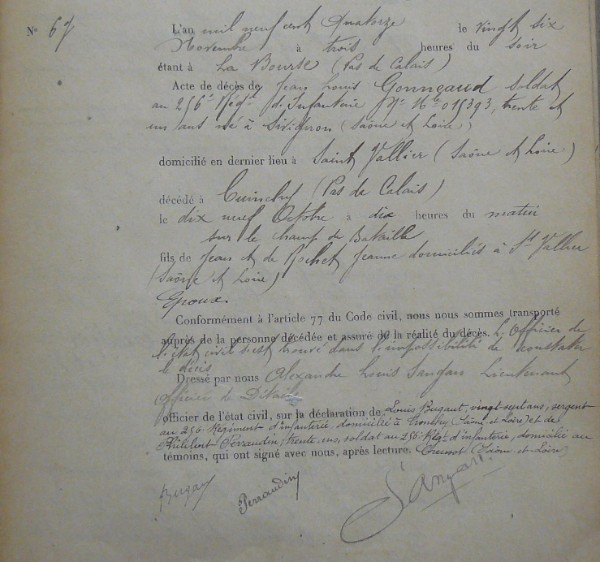 N° 67
L'an mil neuf cent Quatorze le vingt six
Novembre à trois heures du soir
étant à La Bourse (Pas de Calais)
Acte de décès de Jean Louis Gonneaud soldat
au 256e Régt d'Infanterie Nle 015393, trente et
un ans né à Sivignon (Saône et Loire)
domicilié en dernier lieu à Saint Vallier (Saône et Loire)
décédé à Cuinchy (Pas de Calais)
le dix neuf Octobre à dix heures du matin
sur le champ de Bataille
fils de Jean et de Rochet Jeanne domiciliés à St Vallier
(Saône et Loire)
Epoux
Conformément à l'article 77 du Code civil, nous nous sommes transporté
auprès de la personne décédée et assuré de la réalité du décès. L'Officier de
l'état civil s'est trouvé dans l'impossibilité de constater
le décès
Dressé par nous Alexandre Louis Sangan Lieutenant
Officier de Détails
officier de l'état civil, sur la déclaration de Louis Bugaut, vingt sept ans, sergent
au 256 Régiment d'infanterie domicilié à (Saône et Loire) et de
Perraudin, trente ans, soldat au 256 Régt d'infanterie, domicilié au
témoins, qui ont signé avec nous, après lecture. Creusot (Saône et Loire)
Perraudin